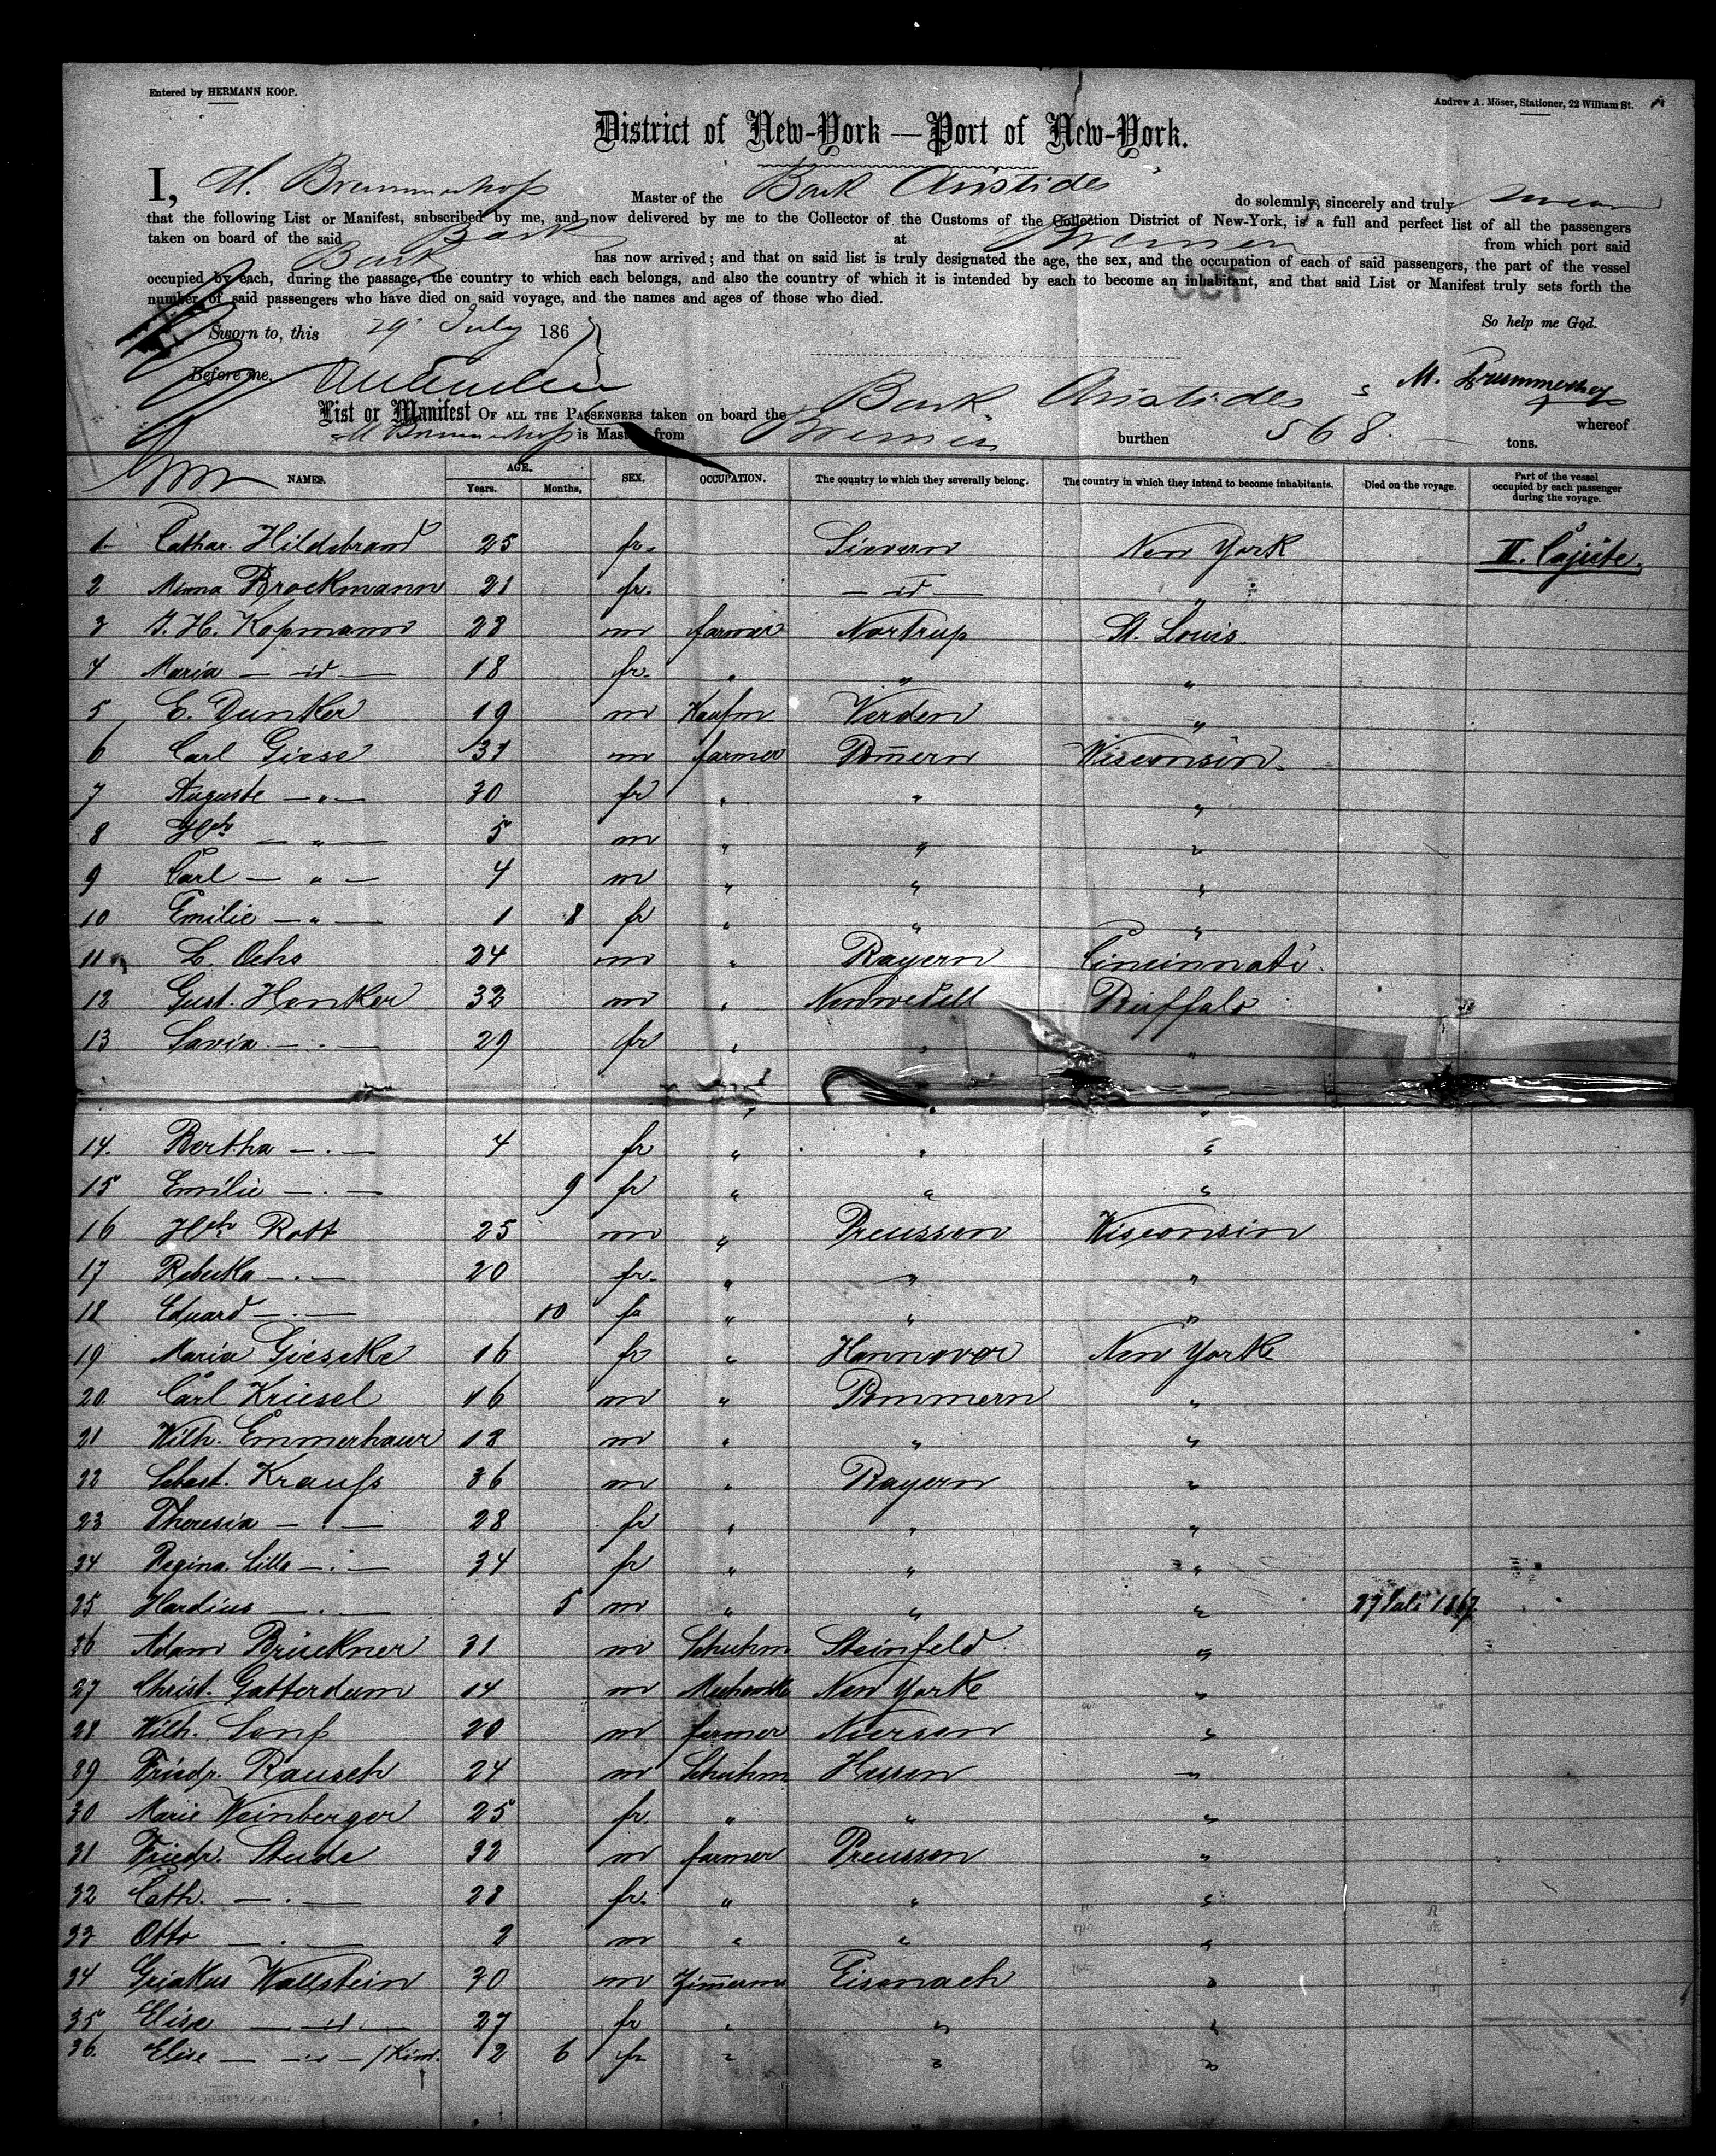 Entered by HERMANN KOOP.
Andrew A. Möser, Stationer, 22 William St.
District of New-York — Port of New-York.
I, M. Brummerhop Master of the Bark Aristides do solemnly, sincerely and truly swear
that the following List or Manifest, subscribed by me, and now delivered by me to the Collector of the Customs of the Collection District of New-York, is a full and perfect list of all the passengers
taken on board of the said Bark at Bremen from which port said
Bark has now arrived; and that on said list is truly designated the age, the sex, and the occupation of each of said passengers, the part of the vessel
occupied by each, during the passage, the country to which each belongs, and also the country of which it is intended by each to become an inhabitant, and that said List or Manifest truly sets forth the
number of said passengers who have died on said voyage, and the names and ages of those who died.
So help me God.
Sworn to, this 29 July 186
Before me,
M. Brummerhop
List or Manifest OF ALL THE PASSENGERS taken on board the Bark Aristides whereof
M Brummerhop is Master, from Bremen burthen 568. tons.
NAMES. AGE. Years. Months, SEX. OCCUPATION. The country to which they severally belong. The country in which they intend to become inhabitants. Died on the voyage. Part of the vessel occupied by each passenger during the voyage.
1. Cathar. Hildebrand 25 fr. Sievern New York II. Cajüte.
2 Minna Brockmann 21 fr. — id — "
3 J. H. Kopmann 28 m farmer Nortrup St. Louis
4 Maria — id — 18 fr. " " "
5 E. Dunker 19 m Kaufm Verden "
6 Carl Giese 31 m farmer Pom̄ern Wisconsin
7 Auguste — " — 30 fr " " "
8 Hch — " — 5 m " " "
9 Carl — " — 4 m " " "
10 Emilie — " — 1 8 fr " " "
11 L. Ochs 24 m " Bayern Cincinnati.
12 Gust. Henker 32 m " Neuwedell Buffalo
13 Savia — " — 29 fr " " "
14. Bertha — " — 4 fr " " "
15 Emilie — " — 9 fr " " "
16 Hch Rott 25 m " Preussen Wisconsin
17 Rebecka — " — 20 fr. " " "
18 Eduard — " — 10 fr " " "
19 Maria Gieseke 16 fr " Hannover New York
20. Carl Kriesel 16 m " Pommern "
21 Wilh. Emmerhaur 18 m " " "
22 Sebast. Krauss 36 m " Bayern "
23 Theresia — " — 28 fr " " "
24 Regina Lilla — " — 34 fr " " "
25 Hardius — " — 5 m " " " 27 Juli 1867
26 Adam Brückner 31 m Schuhm Steinfeld "
27 Christ. Gatterdum 14 m New York "
28 Wilh. Senf 20 m farmer Niersen "
29 Friedr. Rausch 24 m Schuhm Hessen "
30 Marie Weinberger 25 fr. " " "
31 Friedr. Stude 32 m farmer Preussen "
32 Cath. — " — 28 fr. " " "
33 Otto — " — 2 m " " "
34 Wallstein 30 m Zim̄erm Eisenach "
35 Elise — id — 27 fr " " "
36. Elise — id — 1 Kind. 2 6 fr " " "